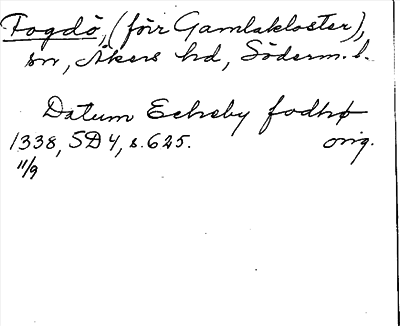 Fogdö, (förr Gamlakloster),
sn, Åkers hd, Söderm. l.
Datum Echsby fodhø
1338, SD 4, s. 625. orig.
11/9